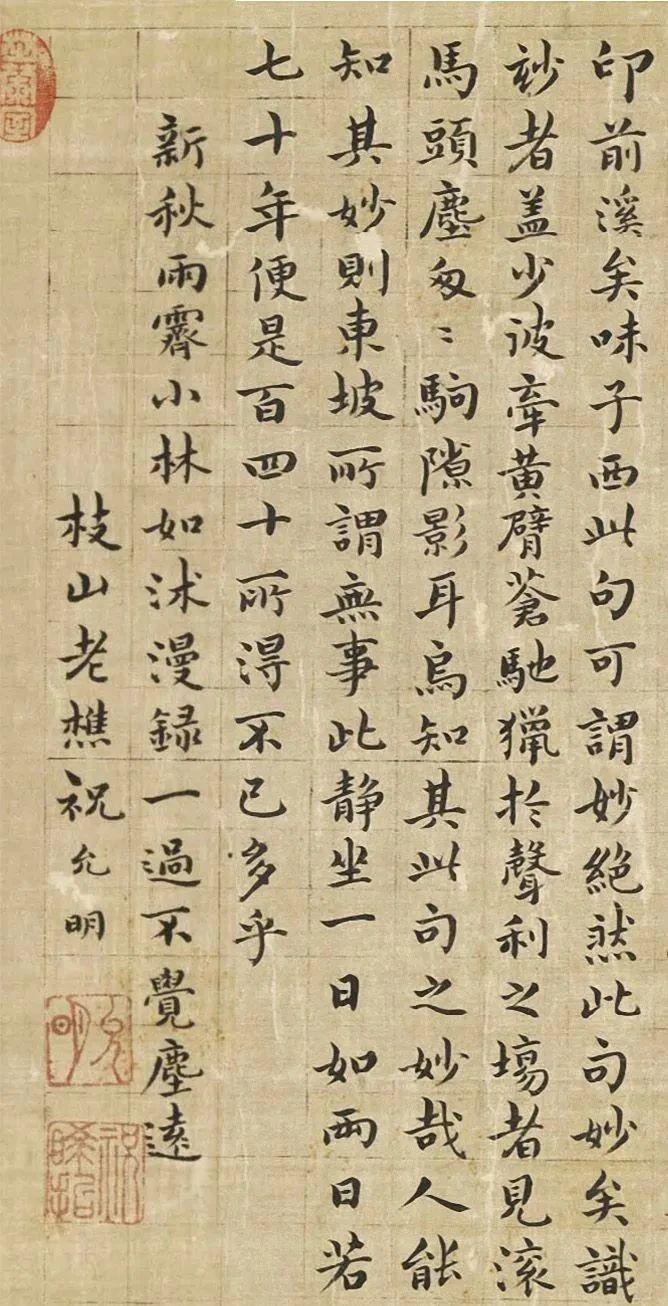 印前溪矣味子西此句可謂妙絶然此句妙矣識
玅者盖少彼牽黄臂蒼馳獵扵聲利之塲者見滚
馬頭塵匆〻駒隙影耳烏知其此句之妙哉人能
知其妙則東坡所謂無事此静坐一日如兩日若
七十年便是百四十所得不已多乎
新秋雨霽小林如沐漫録一過不覺塵遠
枝山老樵祝允明
允明